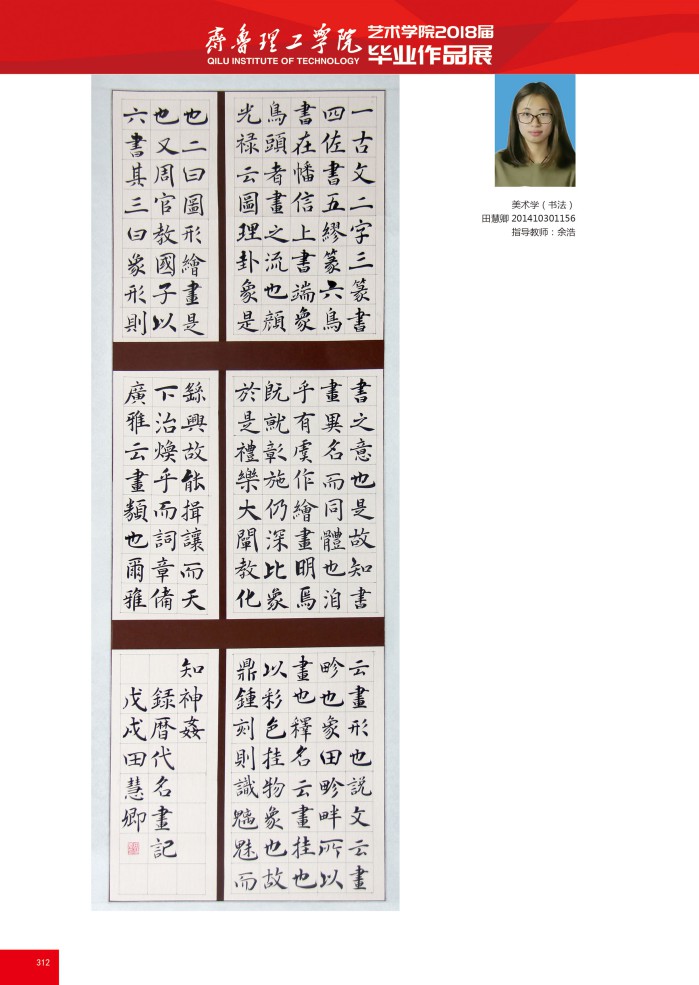 齊魯理工學院
QILU INSTITUTE OF TECHNOLOGY
艺术学院2018届
毕业作品展
一古文二字三篆書
四佐書五繆篆六鳥
書在幡信上書端象
鳥頭者畫之流也顔
光禄云圖理卦象是
也二曰圖形繪畫是
也又周官教國子以
六書其三曰象形則
書之意也是故知書
畫異名而同體也洎
乎有虞作繪畫明焉
既就彰施仍深比象
於是禮樂大闡教化
繇興故能揖讓而天
下治煥乎而詞章備
廣雅云畫類也爾雅
云畫形也説文云畫
畛也象田畛畔所以
畫也釋名云畫挂也
以彩色挂物象也故
鼎鍾刻則識魑魅而
知神姦
録曆代名畫記
戊戌田慧卿
美术学（书法）
田慧卿 201410301156
指导教师：余浩
312